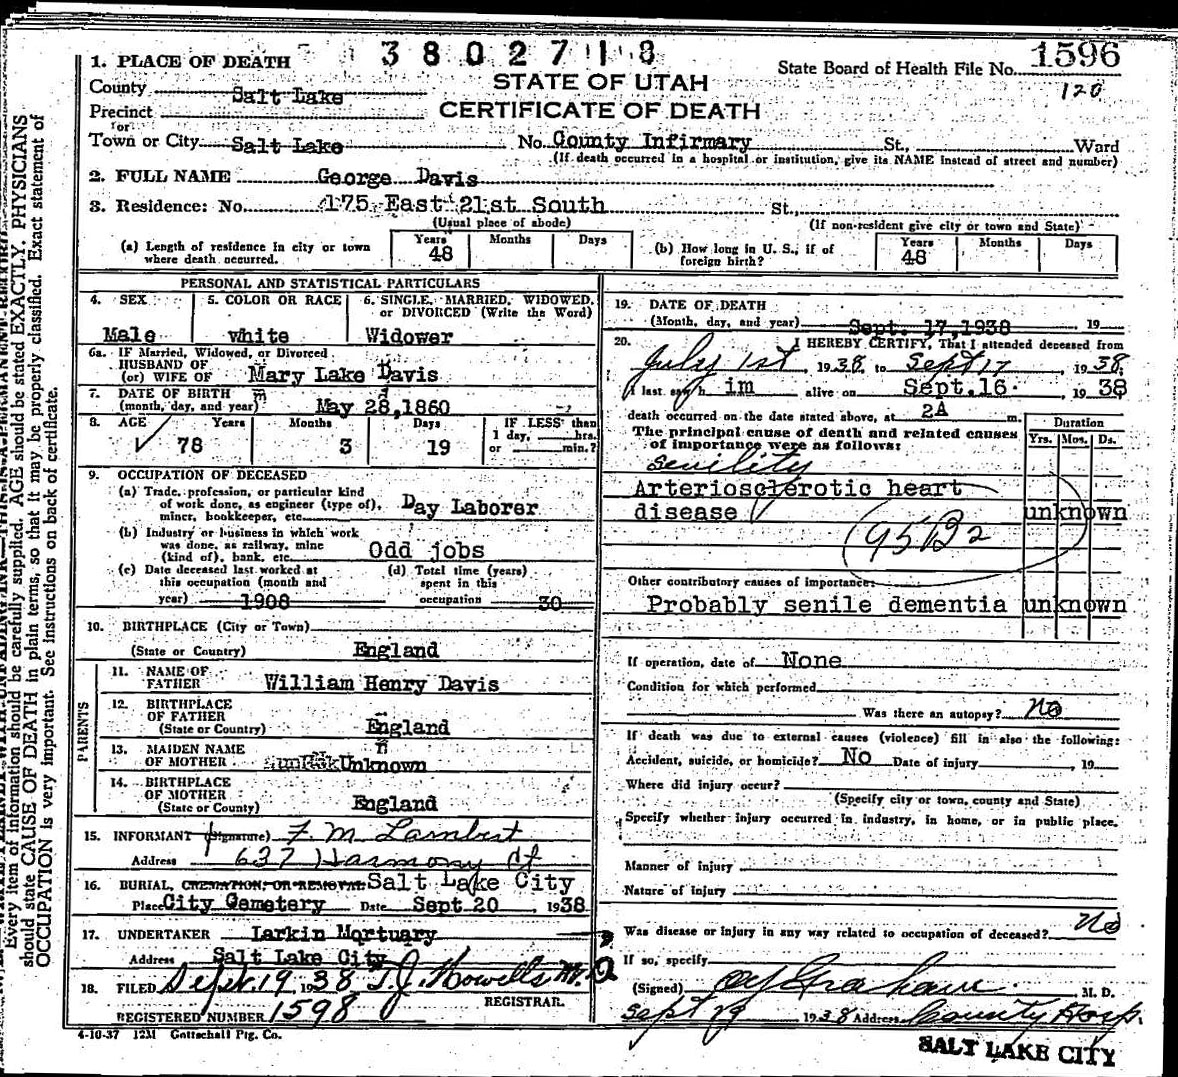 3 8 0 2 7 1 8
1596
120
1. PLACE OF DEATH
STATE OF UTAH
State Board of Health File No.
County Salt Lake
CERTIFICATE OF DEATH
Precinct
or
Town or City Salt Lake No. County Infirmary St., Ward
(If death occurred in a hospital or institution, give its NAME instead of street and number)
2. FULL NAME George Davis
3. Residence: No. 175 East 21st South St.,
(Usual place of abode) (If non-resident give city or town and State)
(a) Length of residence in city or town where death occurred. Years 48 Months Days
(b) How long in U. S., if of foreign birth? Years 48 Months Days
PERSONAL AND STATISTICAL PARTICULARS
4. SEX Male
5. COLOR OR RACE white
6. SINGLE, MARRIED, WIDOWED, or DIVORCED (Write the Word) Widower
6a. IF Married, Widowed, or Divorced
HUSBAND OF
(or) WIFE OF Mary Lake Davis
7. DATE OF BIRTH
(month, day, and year) May 28,1860
8. AGE Years 78 Months 3 Days 19 IF LESS than 1 day, hrs. or min.?
9. OCCUPATION OF DECEASED
(a) Trade, profession, or particular kind
of work done, as engineer (type of),
miner, bookkeeper, etc. Day Laborer
(b) Industry or business in which work
was done, as railway, mine
(kind of), bank, etc. Odd jobs
(c) Date deceased last worked at
this occupation (month and
year) 1908
(d) Total time (years)
spent in this
occupation 30
10. BIRTHPLACE (City or Town)
(State or Country) England
PARENTS
11. NAME OF
FATHER William Henry Davis
12. BIRTHPLACE
OF FATHER
(State or Country) England
13. MAIDEN NAME
OF MOTHER Unknown
14. BIRTHPLACE
OF MOTHER
(State or County) England
15. INFORMANT (Signature) F. M. Lambert
Address 637 Harmony Ct
16. BURIAL, CREMATION, OR REMOVAL Salt Lake City
Place City Cemetery Date Sept 20, 1938
17. UNDERTAKER Larkin Mortuary
Address Salt Lake City
18. FILED Sept. 19, 1938 T.J. Howells M.D.
REGISTRAR.
REGISTERED NUMBER 1598
4-10-37 12M Gottschall Ptg. Co.
19. DATE OF DEATH
(Month, day, and year) Sept. 17,1938, 19
20. I HEREBY CERTIFY, That I attended deceased from
July 1st, 1938, to Sept 17, 1938;
I last saw h im alive on Sept.16, 1938
death occurred on the date stated above, at 2A m.
Duration
Yrs. Mos. Ds.
The principal cause of death and related causes
of importance were as follows:
Senility
Arteriosclerotic heart
disease unknown
95B2
Other contributory causes of importance:
Probably senile dementia unknown
If operation, date of None
Condition for which performed
Was there an autopsy? No
If death was due to external causes (violence) fill in also the following:
Accident, suicide, or homicide? No Date of injury , 19
Where did injury occur?
(Specify city or town, county and State)
Specify whether injury occurred in industry, in home, or in public place.
Manner of injury
Nature of injury
Was disease or injury in any way related to occupation of deceased? No
If so, specify
(Signed) Graham M. D.
Sept 1938 Address County Hosp.
SALT LAKE CITY
Every item of information should be carefully supplied. AGE should be stated EXACTLY. PHYSICIANS
should state CAUSE OF DEATH in plain terms, so that it may be properly classified. Exact statement of
OCCUPATION is very important. See instructions on back of certificate.